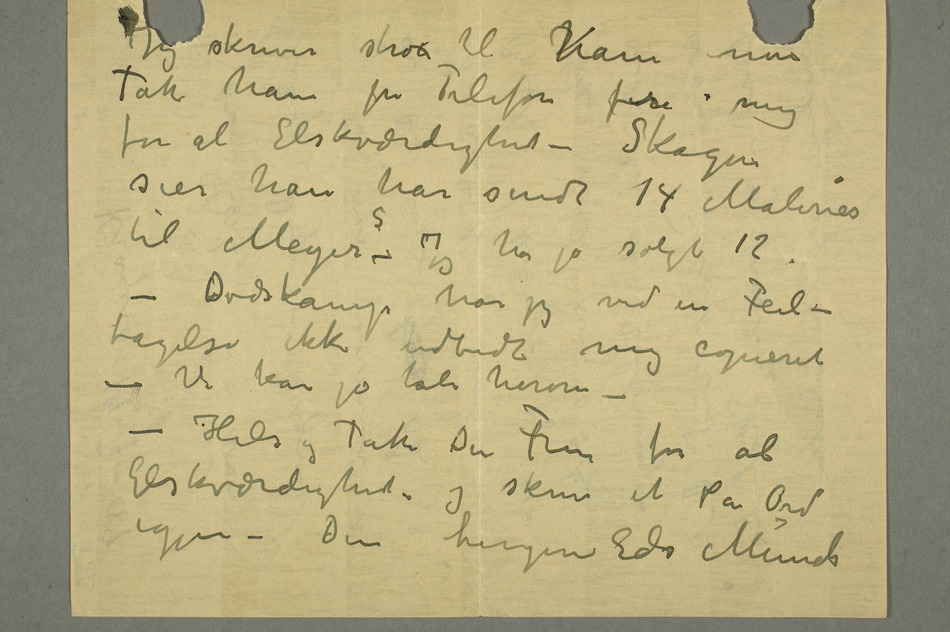 Jeg skriver strax til Ham nu
Tak ham pr Telefon fra mig
for al Elskværdighed – Skagen
sier han har sendt 14 Malerier
til Meyers – Jeg har jo solgt 12.
– Dødskamp har jeg ved en Feil-
tagelse ikke udbedt mig copieret
– Vi kan jo tale herom –
– Hils og Tak Din Frue for al
Elskværdighed – og skriv et Par Ord
igjen – Din hengivne Edv Munch